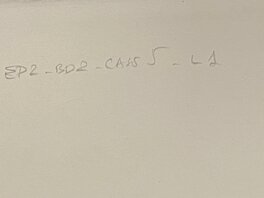 EP2-BD2-CAIS 5-L1